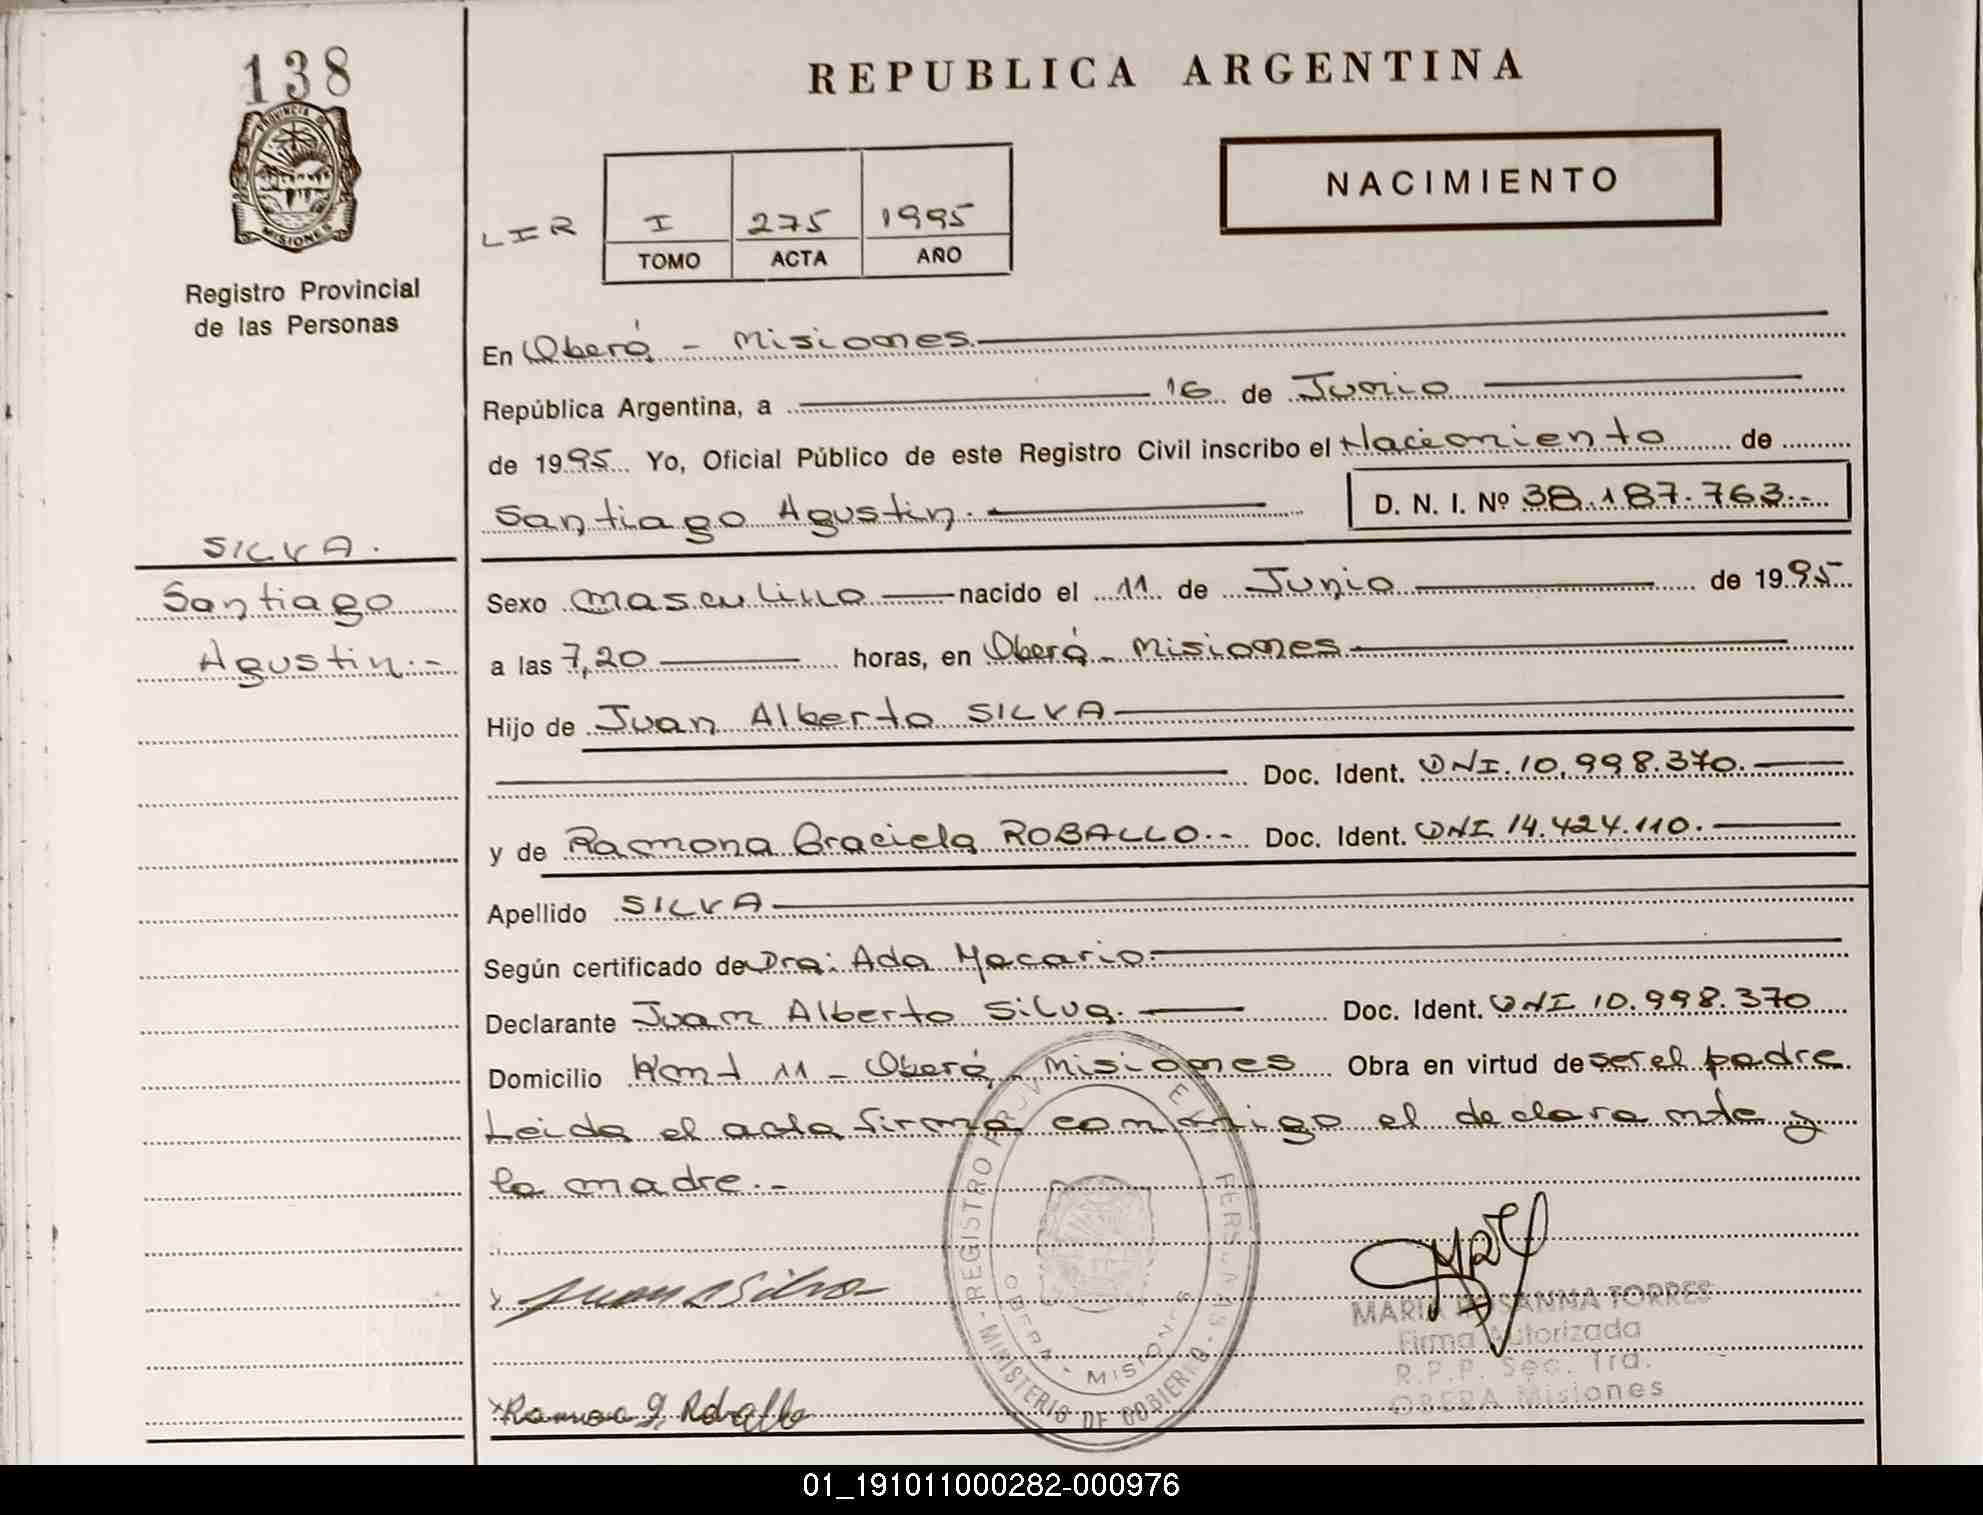 138
PROVINCIA DE
MISIONES
Registro Provincial
de las Personas
SILVA.
Santiago
Agustin.-
REPUBLICA ARGENTINA
NACIMIENTO
I 275 1995
TOMO ACTA AÑO
En Oberá - Misiones.
República Argentina, a 16 de Junio
de 1995 Yo, Oficial Público de este Registro Civil inscribo el Nacimiento de
Santiago Agustin. D. N. I. Nº 38.187.763.-
Sexo masculino nacido el 11 de Junio de 1995
a las 7,20 horas, en Oberá - Misiones
Hijo de Juan Alberto SILVA
Doc. Ident. DNI. 10.998.370.
y de Ramona Graciela ROBALLO.- Doc. Ident. DNI 14.424.110.
Apellido SILVA
Según certificado de Dra: Ada Macario.
Declarante Juan Alberto Silva. Doc. Ident. DNI 10.998.370
Domicilio Km 11 - Oberá - Misiones Obra en virtud de ser el padre
Leida el acta firma conmigo el declarante y
la madre.-
Juan A Silva
Ramona G. Roballo
REGISTRO PROV PERSONAS
MINISTERIO DE GOBIERNO
OBERA - MISIONES
MARIA ROSANNA TORRES
Firma Autorizada
R.P.P. Sec. 1ra.
OBERA Misiones
01_191011000282-000976